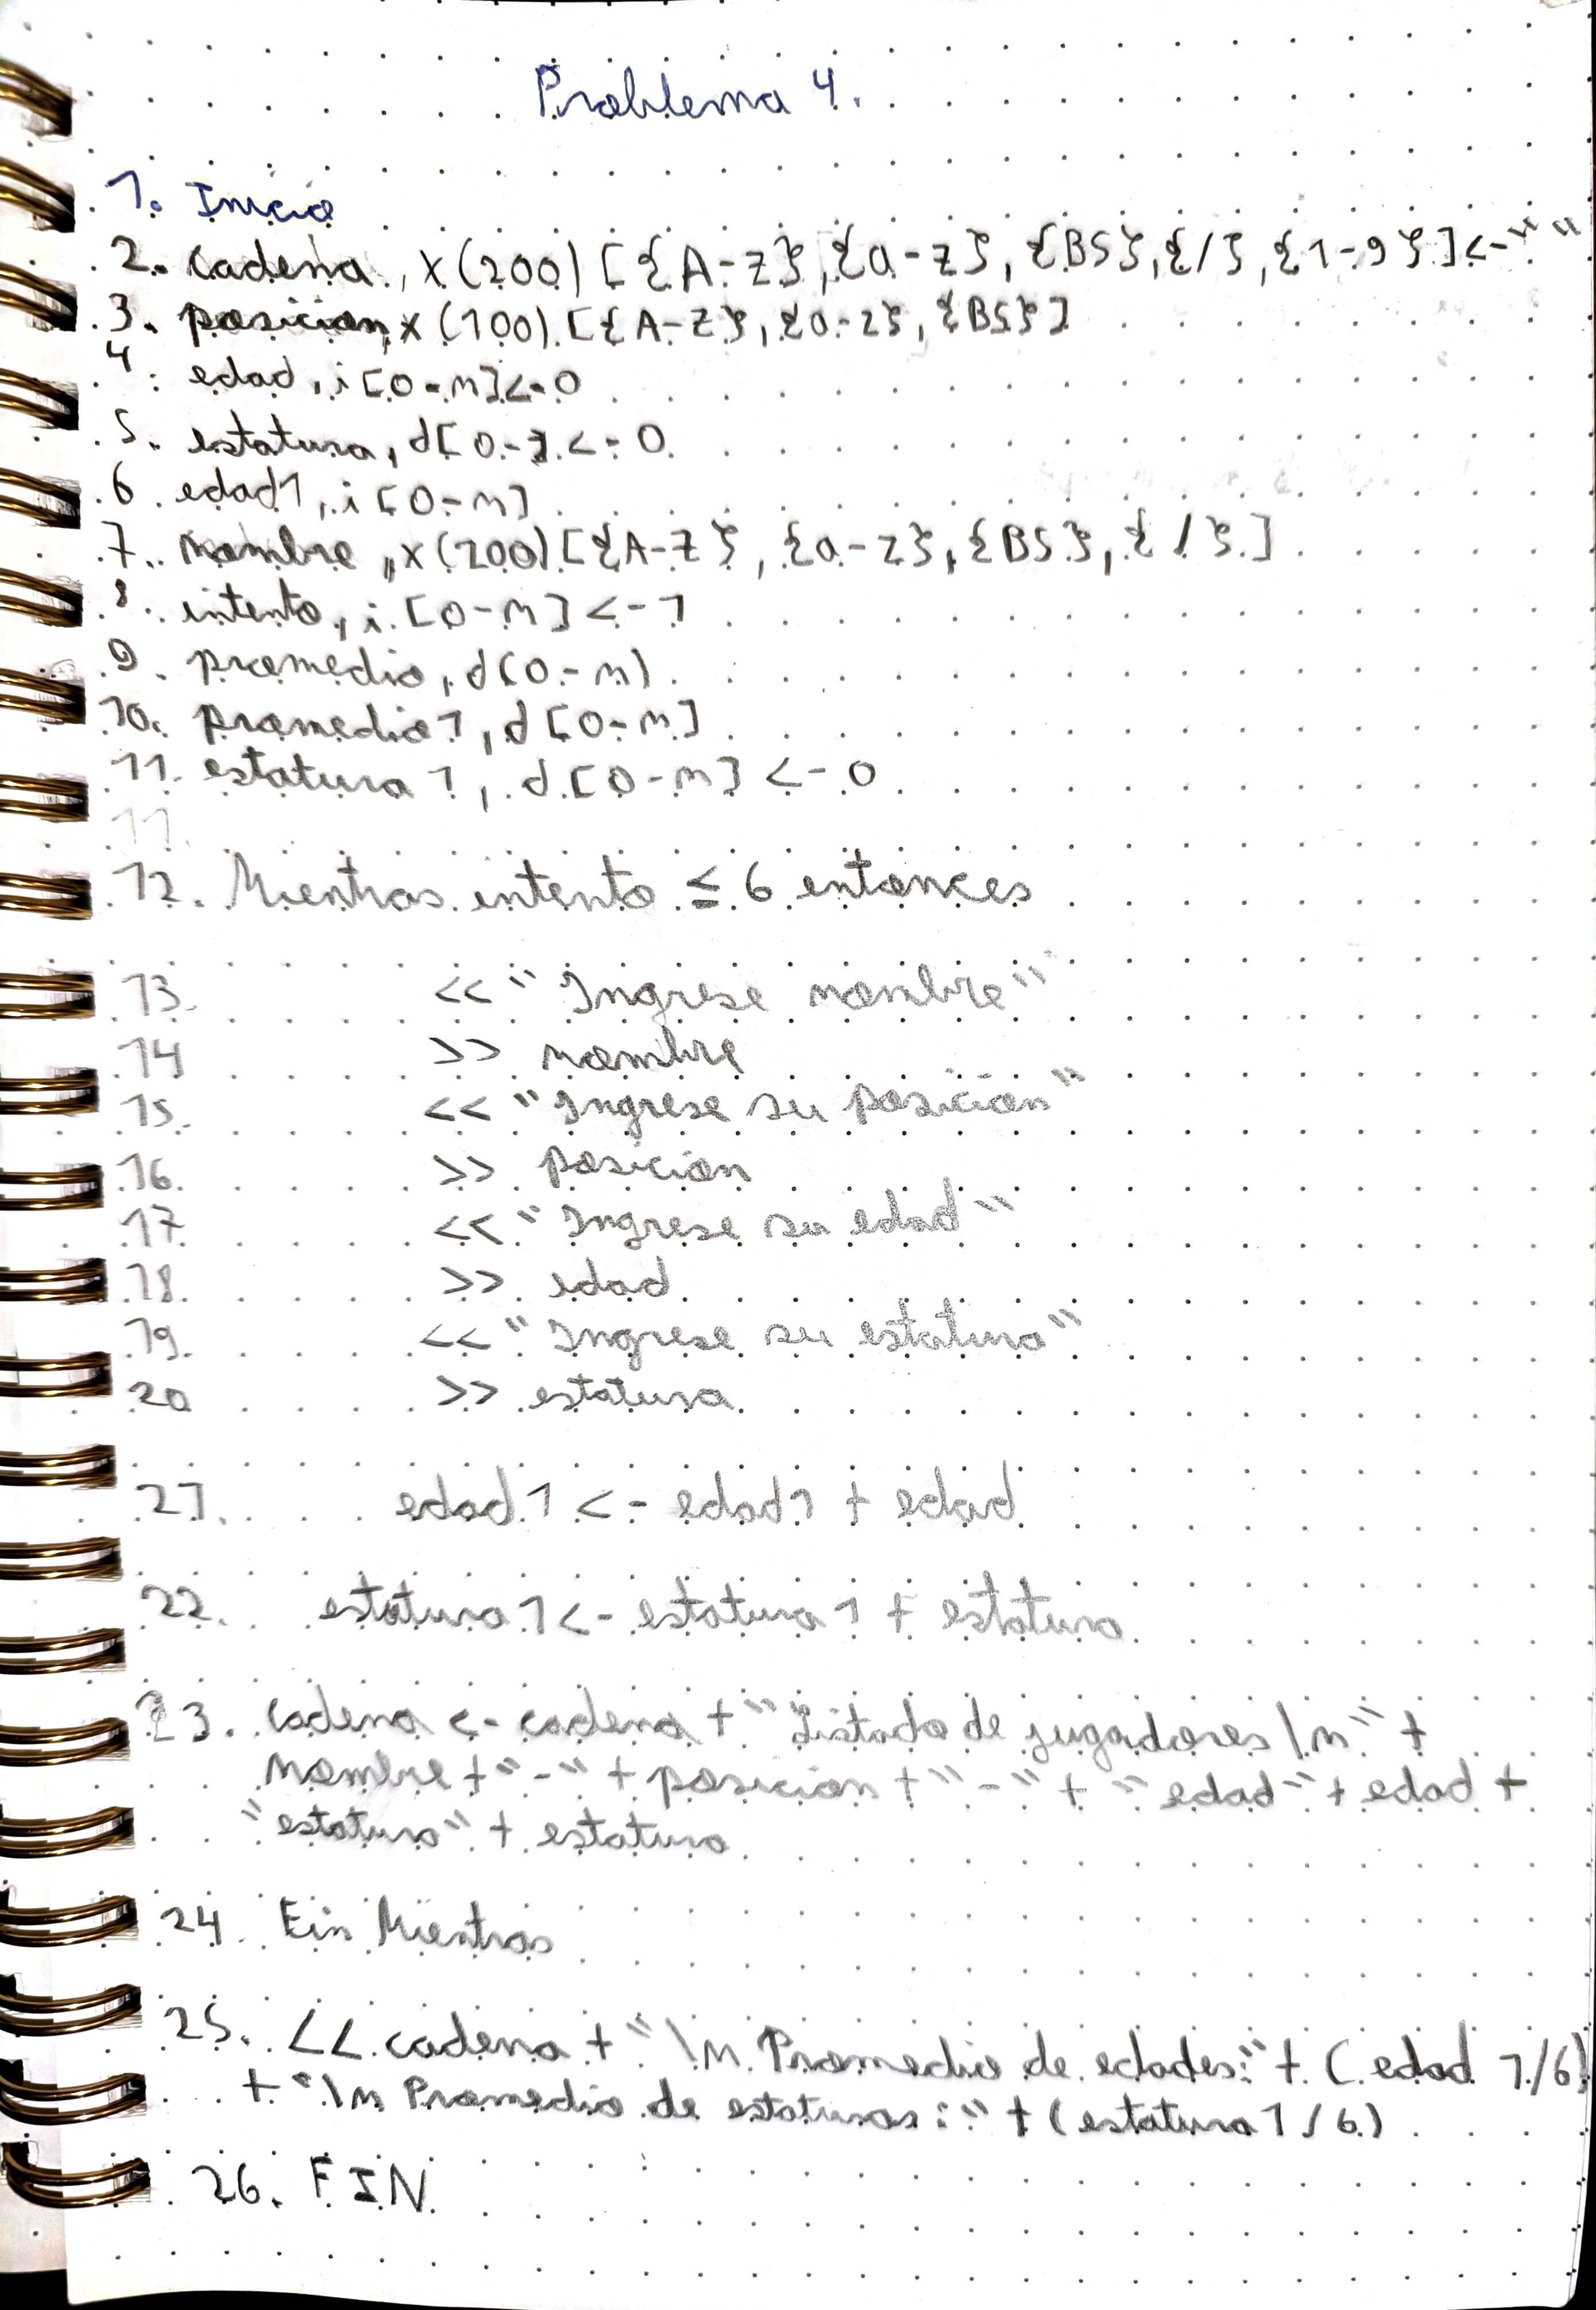 Problema 4.
1. Inicio
2. cadena, x(200)[{A-Z},{a-z},{BS},{/},{1-9}]<-" "
3. posicion, x(100)[{A-Z},{a-z},{BS}]
4. edad, i[0-n]<-0
5. estatura, d[0-]<-0
6. edad1, i[0-n]
7. nombre, x(200)[{A-Z},{a-z},{BS},{/}]
8. intento, i[0-n]<-1
9. promedio, d(0-n)
10. promedio1, d[0-n]
11. estatura1, d[0-n]<-0
11.
12. Mientras intento ≤ 6 entonces
13. << "Ingrese nombre"
14 >> nombre
15. << "Ingrese su posicion"
16. >> posicion
17 << "Ingrese su edad"
18. >> edad
19. << "Ingrese su estatura"
20 >> estatura
21. edad1 <- edad1 + edad
22. estatura1 <- estatura1 + estatura
23. cadena <- cadena + "Listado de jugadores \n" +
nombre + "-" + posicion + "-" + "edad" + edad +
"estatura" + estatura
24. Fin Mientras
25. << cadena + "\n Promedio de edades:" + (edad 1/6)
+ "\n Promedio de estaturas:" + (estatura1/6)
26. FIN